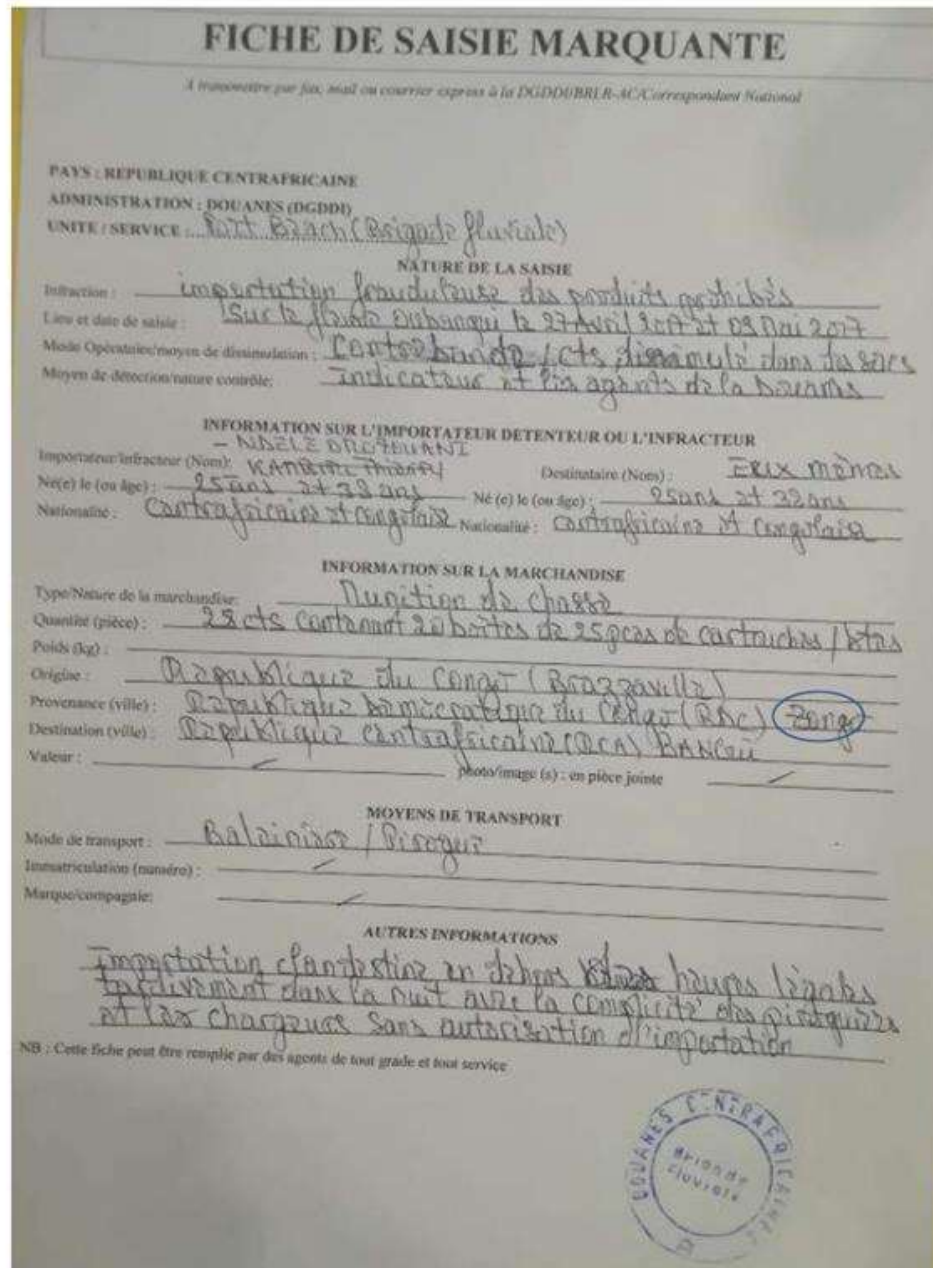 FICHE DE SAISIE MARQUANTE
A transmettre par fax, mail ou courrier express à la DGDDI/BRLR-AC/Correspondant National
PAYS : REPUBLIQUE CENTRAFRICAINE
ADMINISTRATION : DOUANES (DGDDI)
UNITE / SERVICE : Port Beach (Brigade fluviale)
NATURE DE LA SAISIE
Infraction : importation frauduleuse des produits prohibés
Lieu et date de saisie : Sur le fleuve Oubangui le 27 Avril 2017 et 09 Mai 2017
Mode Opératoire/moyen de dissimulation : Contrebande / cts dissimulé dans des sacs
Moyen de détection/nature contrôle: Indicateur et les agents de la Douans
INFORMATION SUR L'IMPORTATEUR DETENTEUR OU L'INFRACTEUR
- NDELE
Importateur/infracteur (Nom): THIERRY Destinataire (Nom) : EUX mêmes
Né(e) le (ou âge) : 25 ans et 32 ans Né (e) le (ou âge) : 25 ans et 32 ans
Nationalité : Centrafricaine et congolaise Nationalité : Centrafricaine et congolaise
INFORMATION SUR LA MARCHANDISE
Type/Nature de la marchandise: Munition de chasse
Quantité (pièce) : 28 cts contenant 20 boîtes de 25 pces de cartouches /
Poids (kg) :
Origine : République du Congo (Brazzaville)
Provenance (ville) : République Démocratique du Congo (RDC) Zongo
Destination (ville) : République centrafricaine (RCA) BANGUI
Valeur : / photo/image (s) : en pièce jointe /
MOYENS DE TRANSPORT
Mode de transport : Baleinière / Pirogue
Immatriculation (numéro) : /
Marque/compagnie: /
AUTRES INFORMATIONS
Importation clandestine en dehors heures légales
tardivement dans la nuit avec la complicité des piroguiers
et les chargeurs sans autorisation d'importation
NB : Cette fiche peut être remplie par des agents de tout grade et tout service
DOUANES CENTRAFRICAINES
Brigade
Fluviale